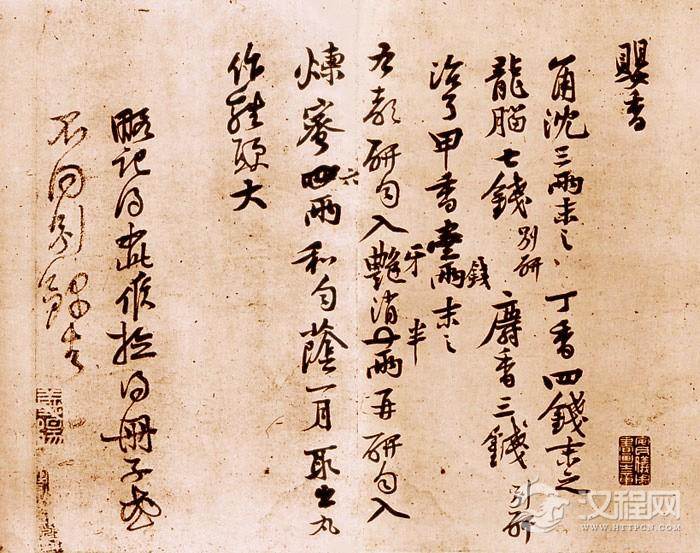 嬰香
角沈三兩末之丁香四錢末之
龍腦七錢別研麝香三錢別研
治了甲香壹兩錢末之
右都研勻入艷牙消半兩再研勻入
煉蜜四六兩和勻蔭一月取出丸
作雞頭大
略記得此候檢得冊子或
不同別錄去
汉程网
WWW.HTTPCN.COM